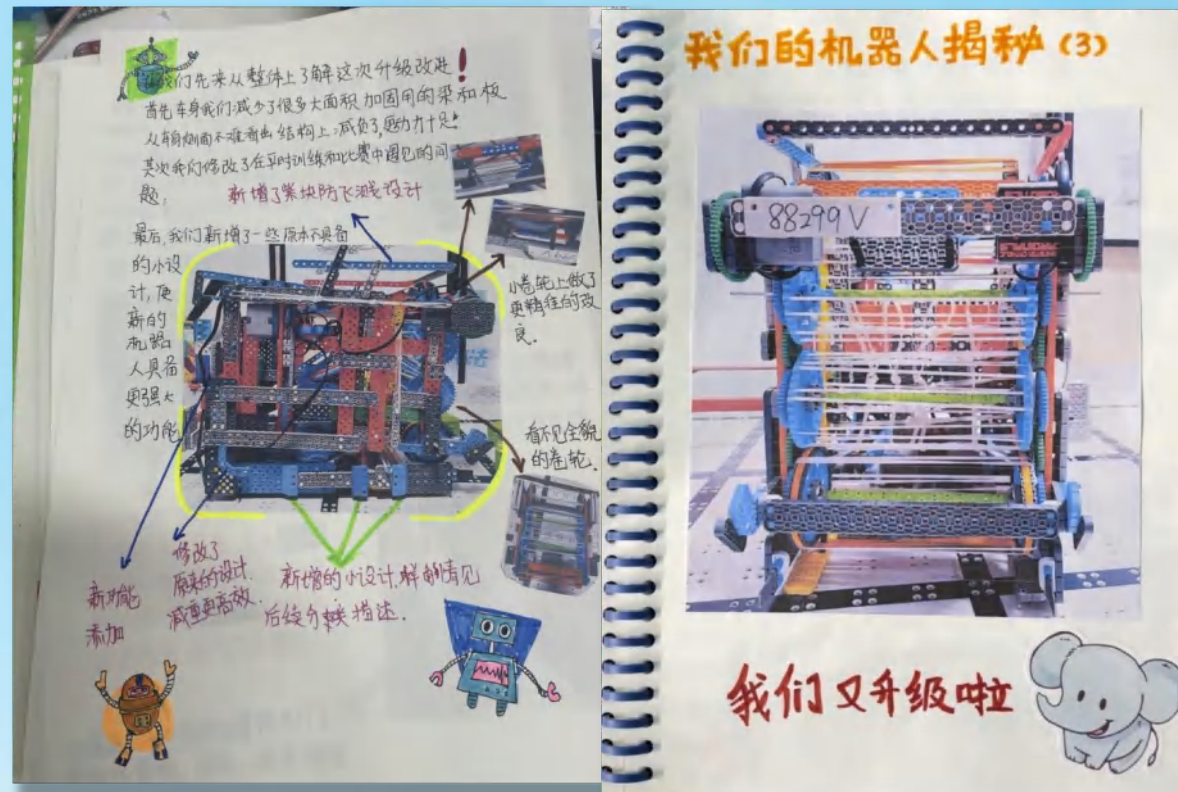 我们先来从整体上了解这次升级改进!
首先车身我们减少了很多大面积加固用的梁和板
从车身侧面不难看出结构上减负了,动力十足!
其次我们修改了在平时训练和比赛中遇见的问
题;
新增了紫块防飞溅设计
最后,我们新增了一些原本不具备
的小设
计,使
新的
机器
人具备
更强大
的功能
小卷轮上做了
更精准的改
良.
看不见全貌
的卷轮.
新功能
添加
修改了
原来的设计.
减重更高效.
新增的小设计.详解请见
后续分类描述.
我们的机器人揭秘(3)
88299V
我们又升级啦